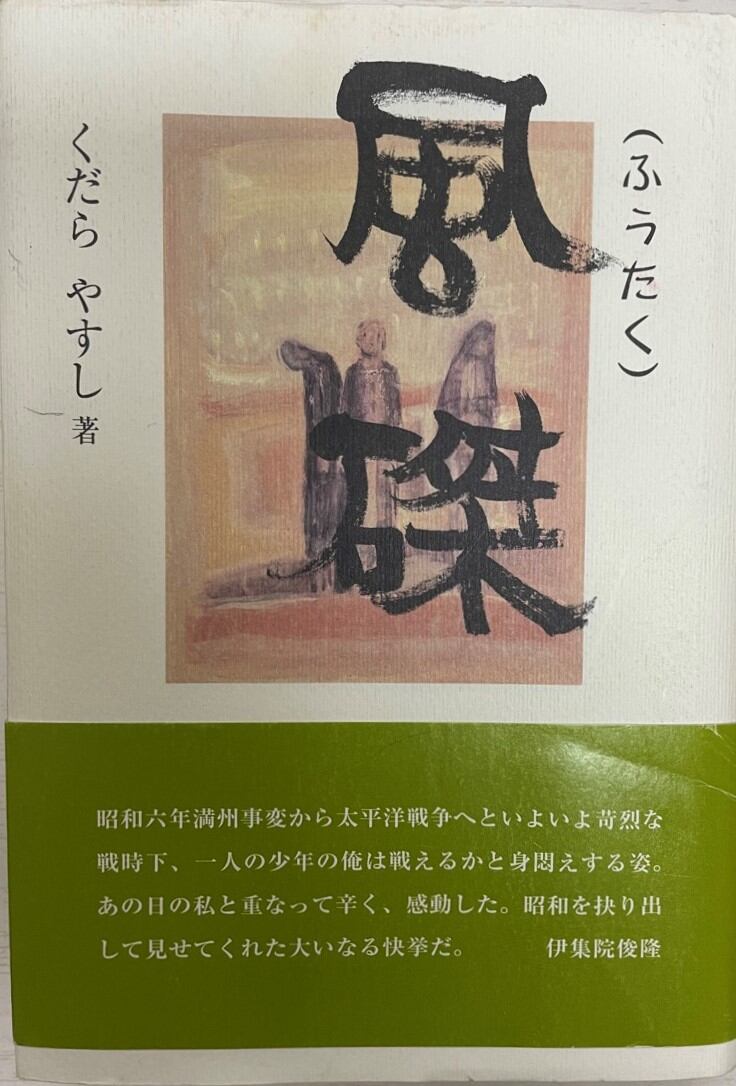 風磔
(ふうたく)
くだら やすし 著
昭和六年満州事変から太平洋戦争へといよいよ苛烈な
戦時下、一人の少年の俺は戦えるかと身悶えする姿。
あの日の私と重なって辛く、感動した。昭和を抉り出
して見せてくれた大いなる快挙だ。 伊集院俊隆